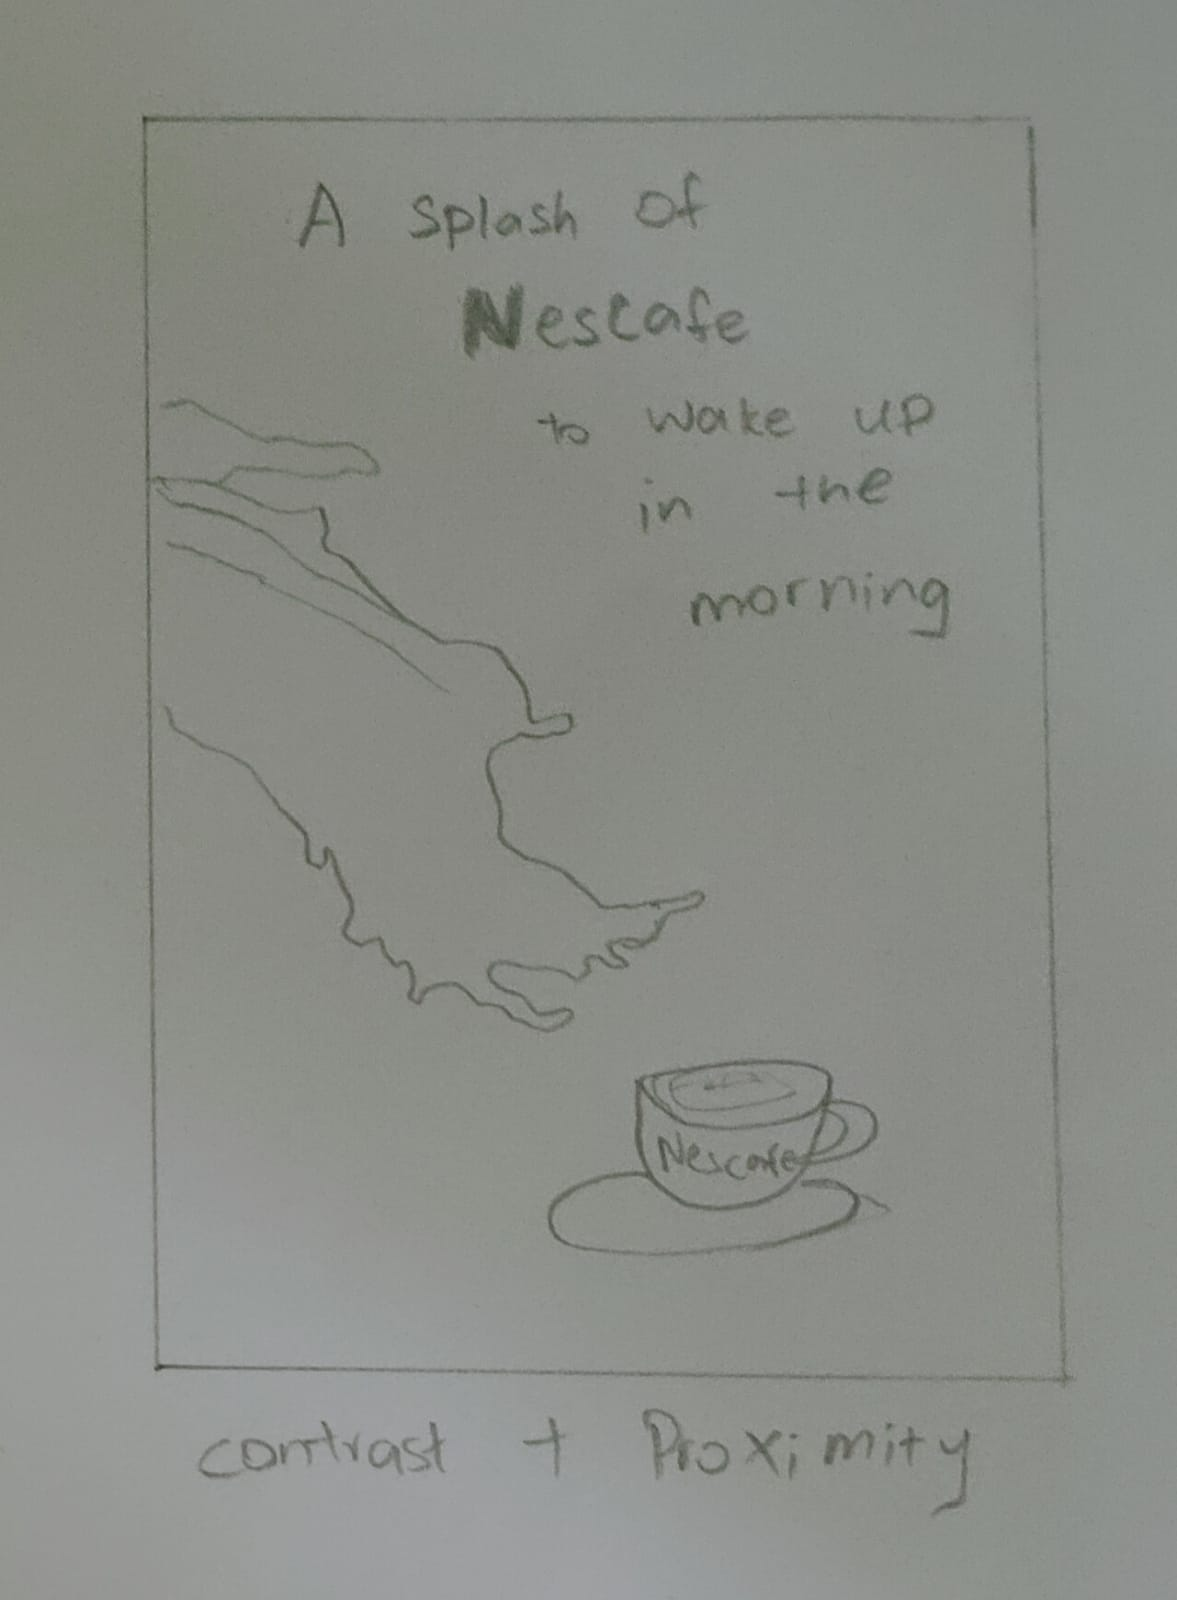 A splash of
Nescafe
to wake up
in the
morning
Nescafe
contrast + Proximity